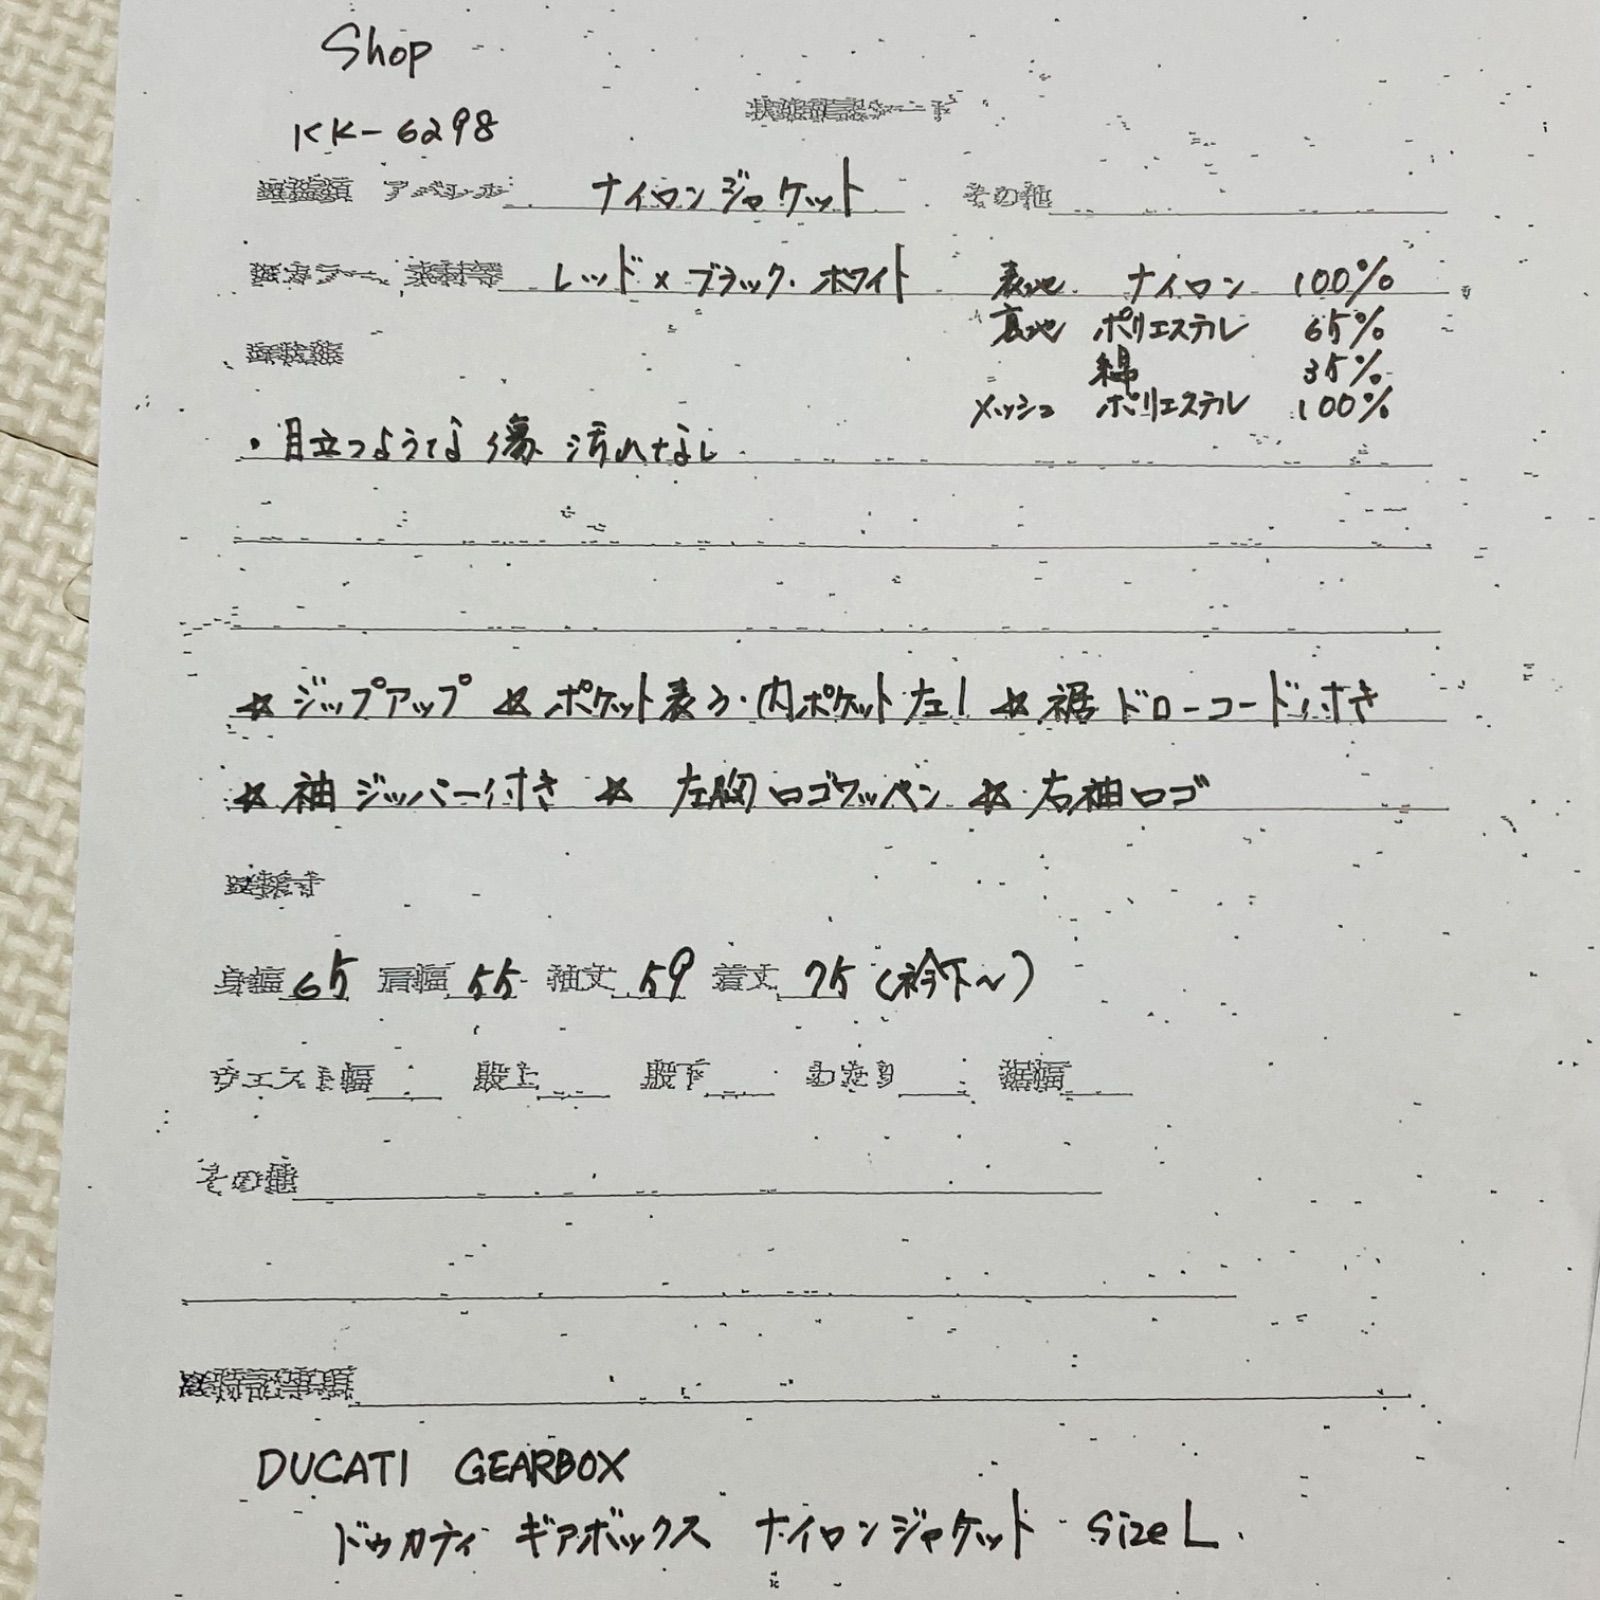 Shop
KK-6298
状態確認シート
アパレル ナイロンジャケット その他
カラー、素材等 レッド×ブラック・ホワイト 表地 ナイロン 100%
裏地 ポリエステル 65%
綿 35%
メッシュ ポリエステル 100%
・目立つような傷 汚れなし
☆ジップアップ ☆ポケット表2・内ポケット左1 ☆裾ドローコード付き
☆袖ジッパー付き ☆左胸ロゴワッペン ☆右袖ロゴ
身幅 65 肩幅 55 袖丈 59 着丈 75(衿下~)
ウエスト幅 股上 股下 わたり 裾幅
その他
※特記事項
DUCATI GEARBOX
ドゥカティ ギアボックス ナイロンジャケット size L.